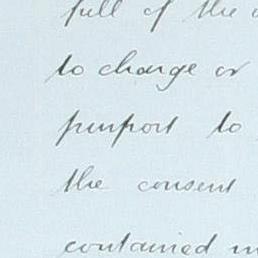 full of the
to charge or
purport to
the consent
contained in